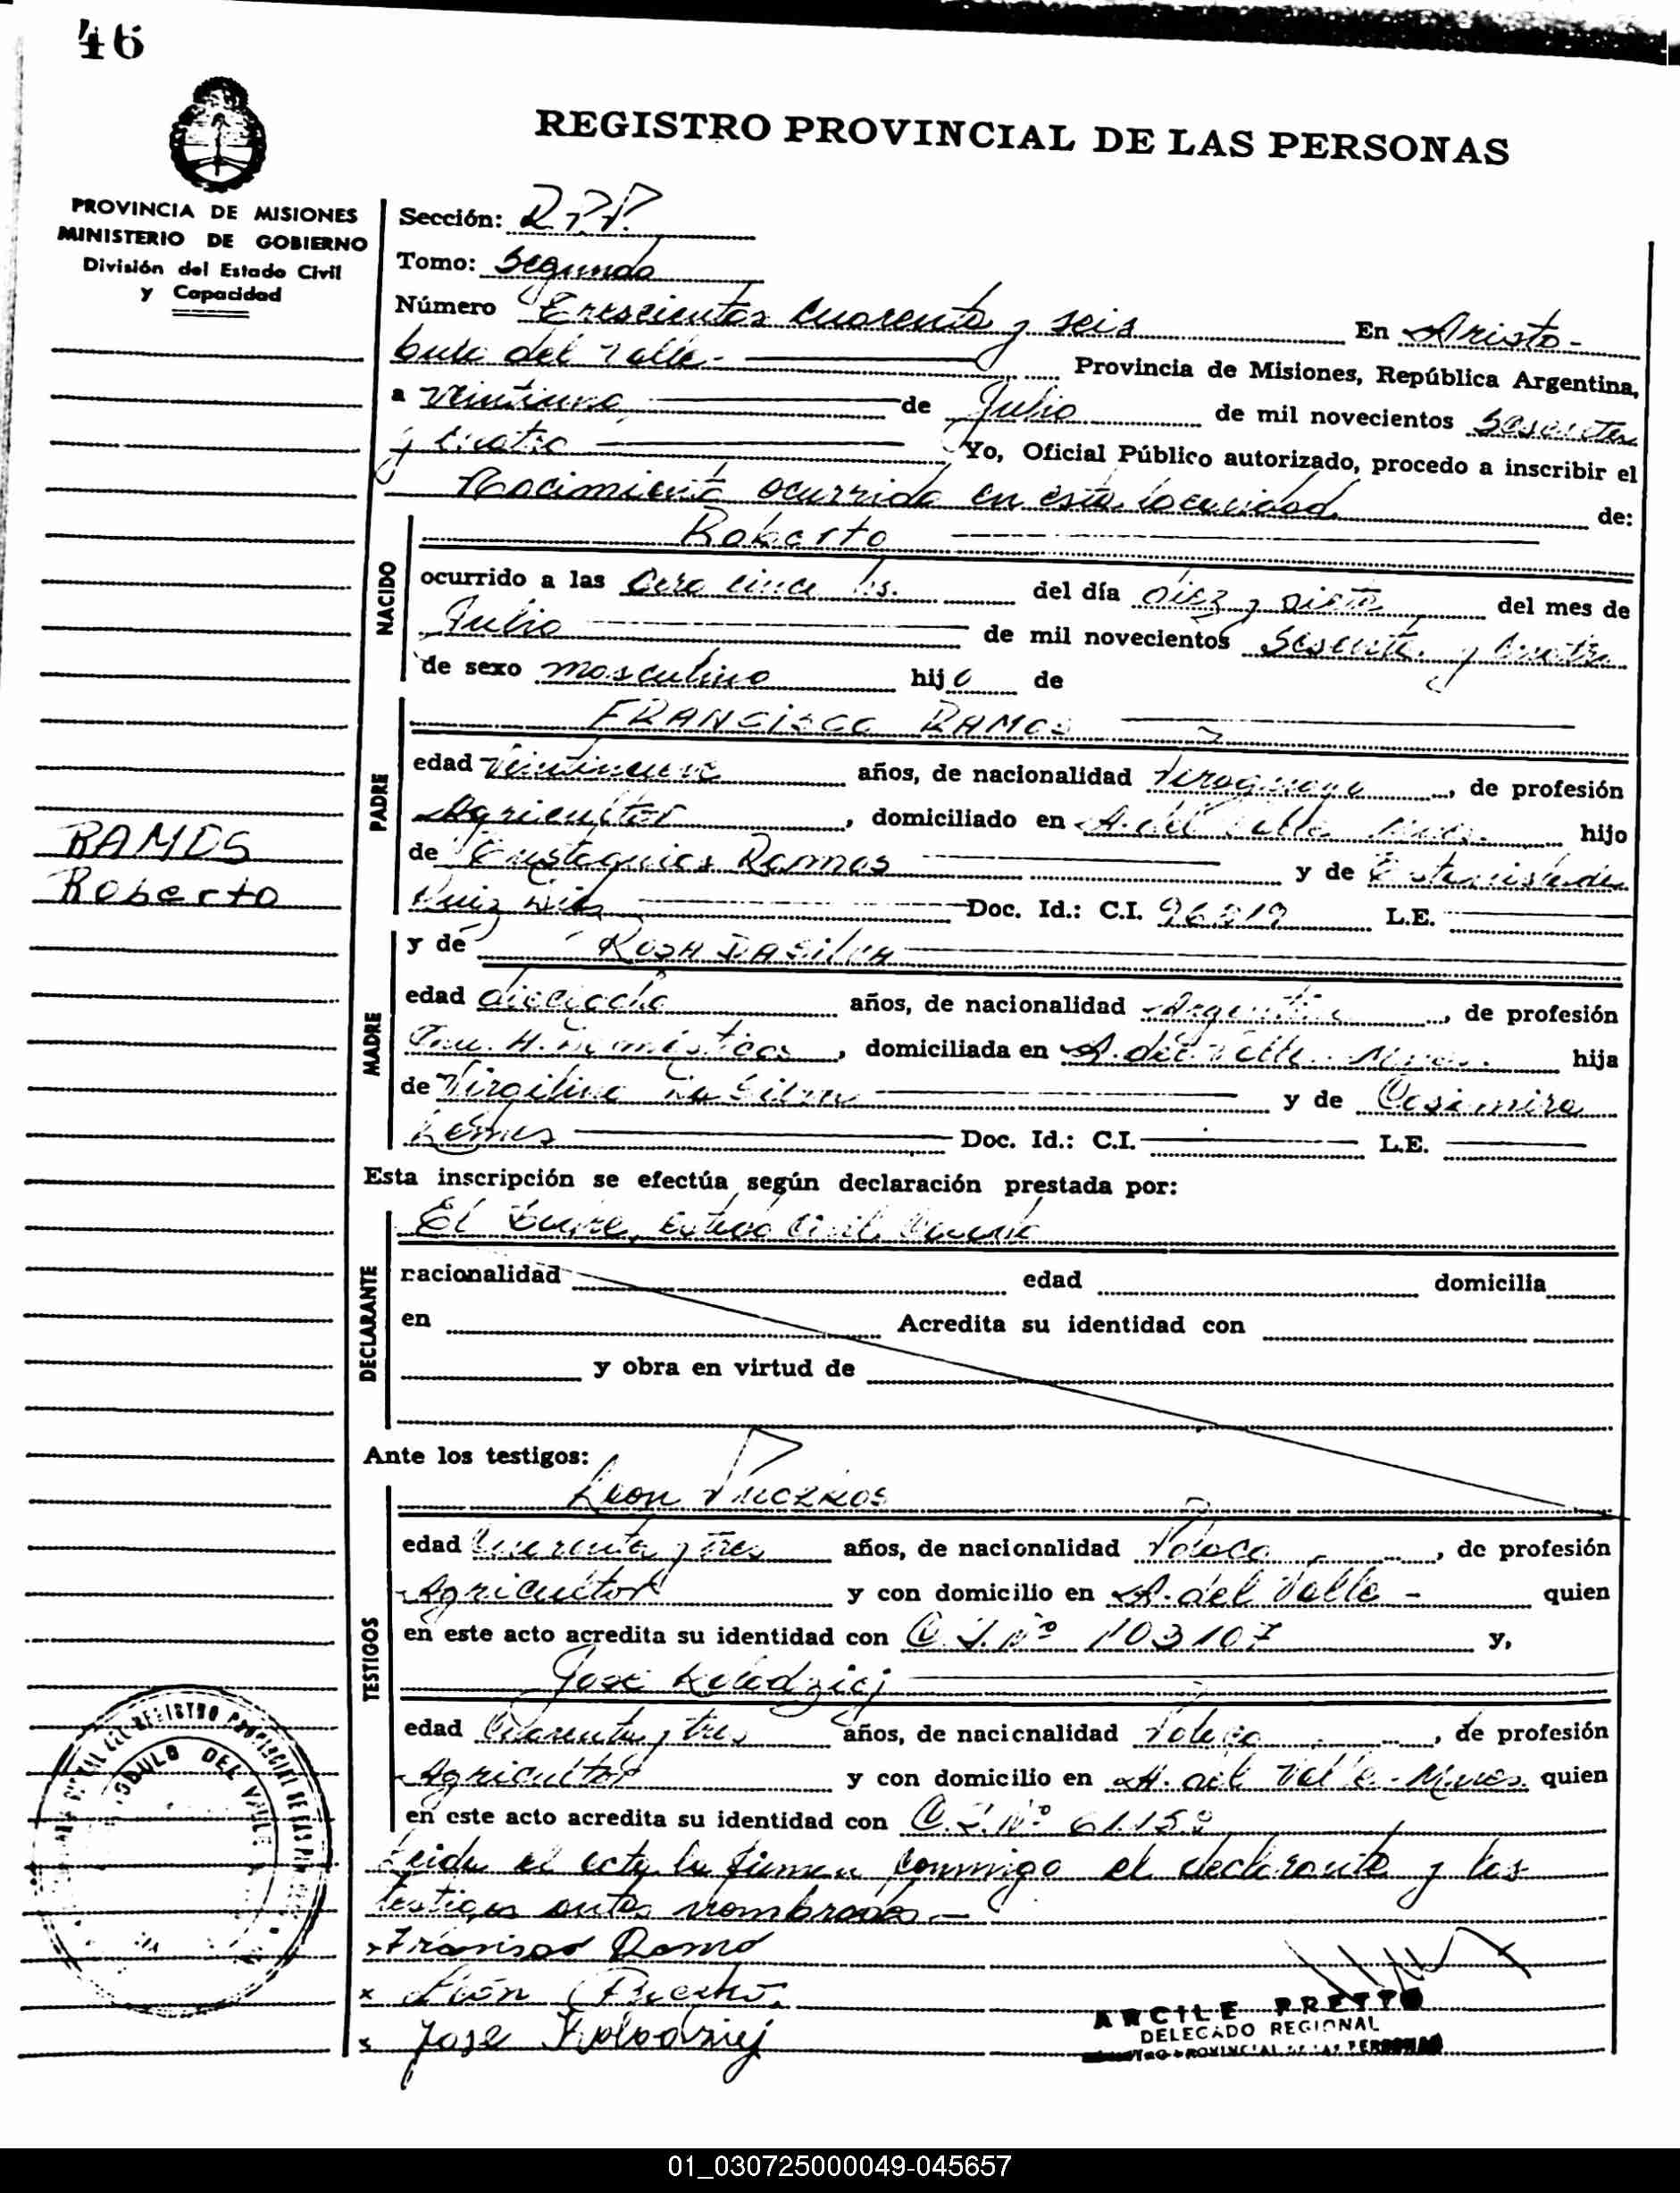 46
REGISTRO PROVINCIAL DE LAS PERSONAS
PROVINCIA DE MISIONES
MINISTERIO DE GOBIERNO
División del Estado Civil
y Capacidad
Sección: R.P.P.
Tomo: Segundo
Número Trescientos cuarenta y seis En Aristo-
bulo del Valle- Provincia de Misiones, República Argentina,
a veintiuno de Julio de mil novecientos Sesenta
y cuatro Yo, Oficial Público autorizado, procedo a inscribir el
Nacimiento ocurrido en esta localidad de:
NACIDO
Roberto
ocurrido a las cero cinco hs. del día diez y siete del mes de
Julio de mil novecientos Sesenta y cuatro
de sexo masculino hijo de
PADRE
FRANCISCO RAMOS
edad años, de nacionalidad , de profesión
Agricultor , domiciliado en A. del Valle Mnes. hijo
de Ramos y de
Ruiz Doc. Id.: C.I. L.E.
RAMOS
Roberto
y de ROSA DA SILVA
MADRE
edad dieciocho años, de nacionalidad Argentina , de profesión
, domiciliada en A. del Valle Mnes. hija
de Da Silva y de Casimira
Doc. Id.: C.I. L.E.
Esta inscripción se efectúa según declaración prestada por:
DECLARANTE
El Padre, estado civil
nacionalidad edad domicilia
en Acredita su identidad con
y obra en virtud de
Ante los testigos:
TESTIGOS
Leon
edad Cuarenta y tres años, de nacionalidad Polaca , de profesión
Agricultor y con domicilio en A. del Valle - quien
en este acto acredita su identidad con C.I. Nº 103107 y,
José Kolodziej
edad Cuarenta y tres años, de nacionalidad Polaca , de profesión
Agricultor y con domicilio en A. del Valle - Mnes. quien
en este acto acredita su identidad con C.I. Nº
Leida el acta la firman conmigo el declarante y los
testigos antes nombrados.-
x Francisco Ramo
x León
x Jose Kolodziej
ARCILE PRETTO
DELEGADO REGIONAL
REGISTRO PROVINCIAL DE LAS PERSONAS
01_030725000049-045657